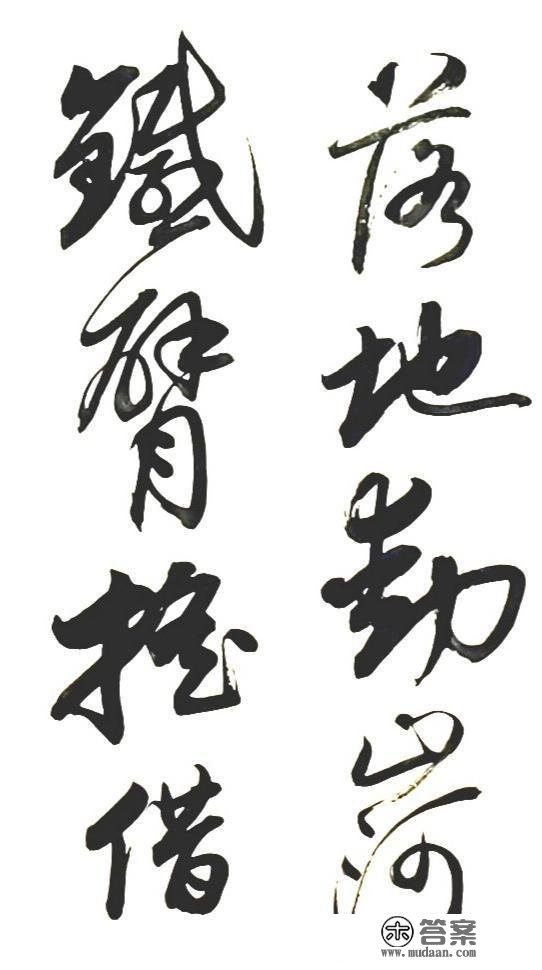 落地動山河
鐵臂摇借
答案
www.mudaan.com